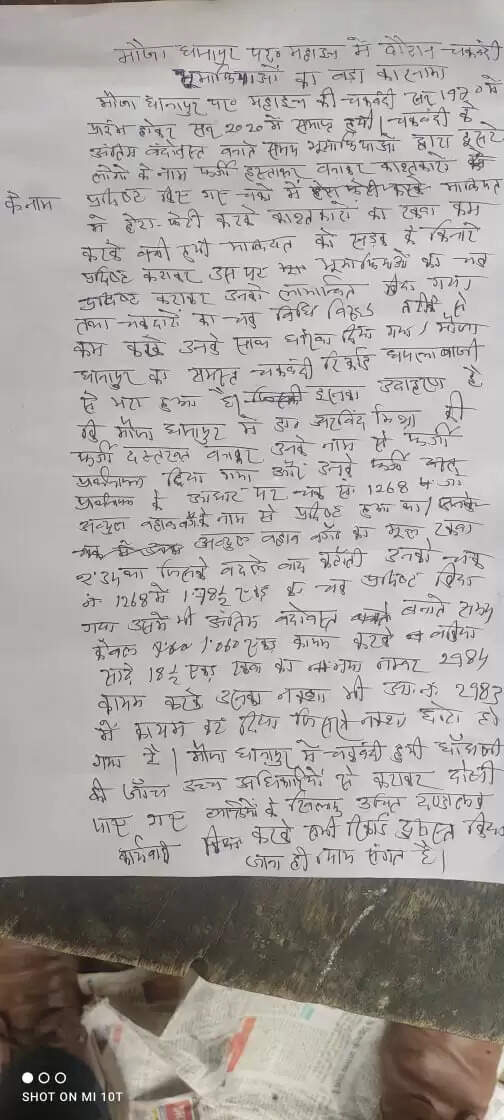 मौजा धानापुर पर० महाइच में दौरान चकबंदी
भूमाफियाओं का बड़ा कारनामा
मौजा धानापुर पर० महाइच की चकबंदी सन् 1970 में
प्रारंभ होकर सन् 2020 में समाप्त हुयी। चकबंदी के
अंतिम बंदोबस्त बनाते समय भूमाफियाओं द्वारा दूसरे
लोगों के नाम फर्जी हस्ताक्षर बनाकर काश्तकारों
के नाम प्रदिष्ट किए गए चको में मालियत
में हेरा-फेरी करके काश्तकारों का रकबा कम
करके बची हुयी मालियत को सड़क के किनारे
प्रदिष्ट कराकर उस पर भूमाफियाओं का चक
प्रदिष्ट कराकर उनको लाभान्वित किया गया।
तथा चकदारों का चक विधि विरुद्ध तरीके से
कम करके उनके साथ धोखा दिया गया। मौजा
धानापुर का समस्त चकबंदी रिकॉर्ड घपलाबाजी
से भरा हुआ है। इसका उदाहरण है
की मौजा धानापुर में डा० अरविंद मिश्रा की
फर्जी दस्तखत बनाकर उनके नाम से फर्जी
प्रार्थनापत्र दिया गया और उनके फर्जी
प्रार्थनापत्र के आधार पर चक सं. 1268 जो
अब्दुल वहाब वगै० के नाम से प्रदिष्ट हुआ था।
अब्दुल वहाब वगै० का मूल रकबा
2.34 था जिसके बदले बाद कटौती उनको चक
नं 1268 में 1.78½ एकड़ का चक प्रदिष्ट किया
गया उसमें भी अंतिम बंदोबस्त बनाते समय
केवल 1.060 एकड़ कायम करके
साढ़े 18½ एकड़ रकबा का नया नम्बर 2984
कायम करके उसका नक्शा भी आ.नं. 2983
में कायम कर दिया जिससे नक्शा छोटा हो
गया है। मौजा धानापुर में चकबंदी हुयी धाँधली
की जाँच उच्च अधिकारियों से कराकर दोषी
पाए गए व्यक्तियों के खिलाफ उचित दण्डात्मक
कार्यवाही करके सभी रिकॉर्ड दुरुस्त किया
जाना ही न्याय संगत है।
SHOT ON MI 10T